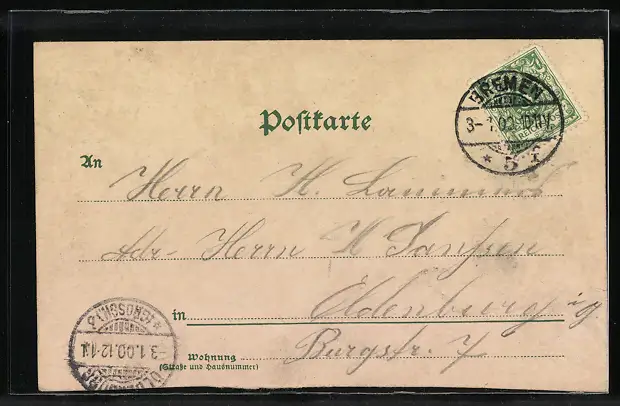 BREMEN
3-1.00.10-11V.
* 5 f
Postkarte
An
Herrn H.
Adr- Herrn H Janssen
in Oldenburg i/g
Wohnung Burgstr. 7
(Straße und Hausnummer)
OLDENBURG
3.1.00.12-1N.
* (GROSSH.) *